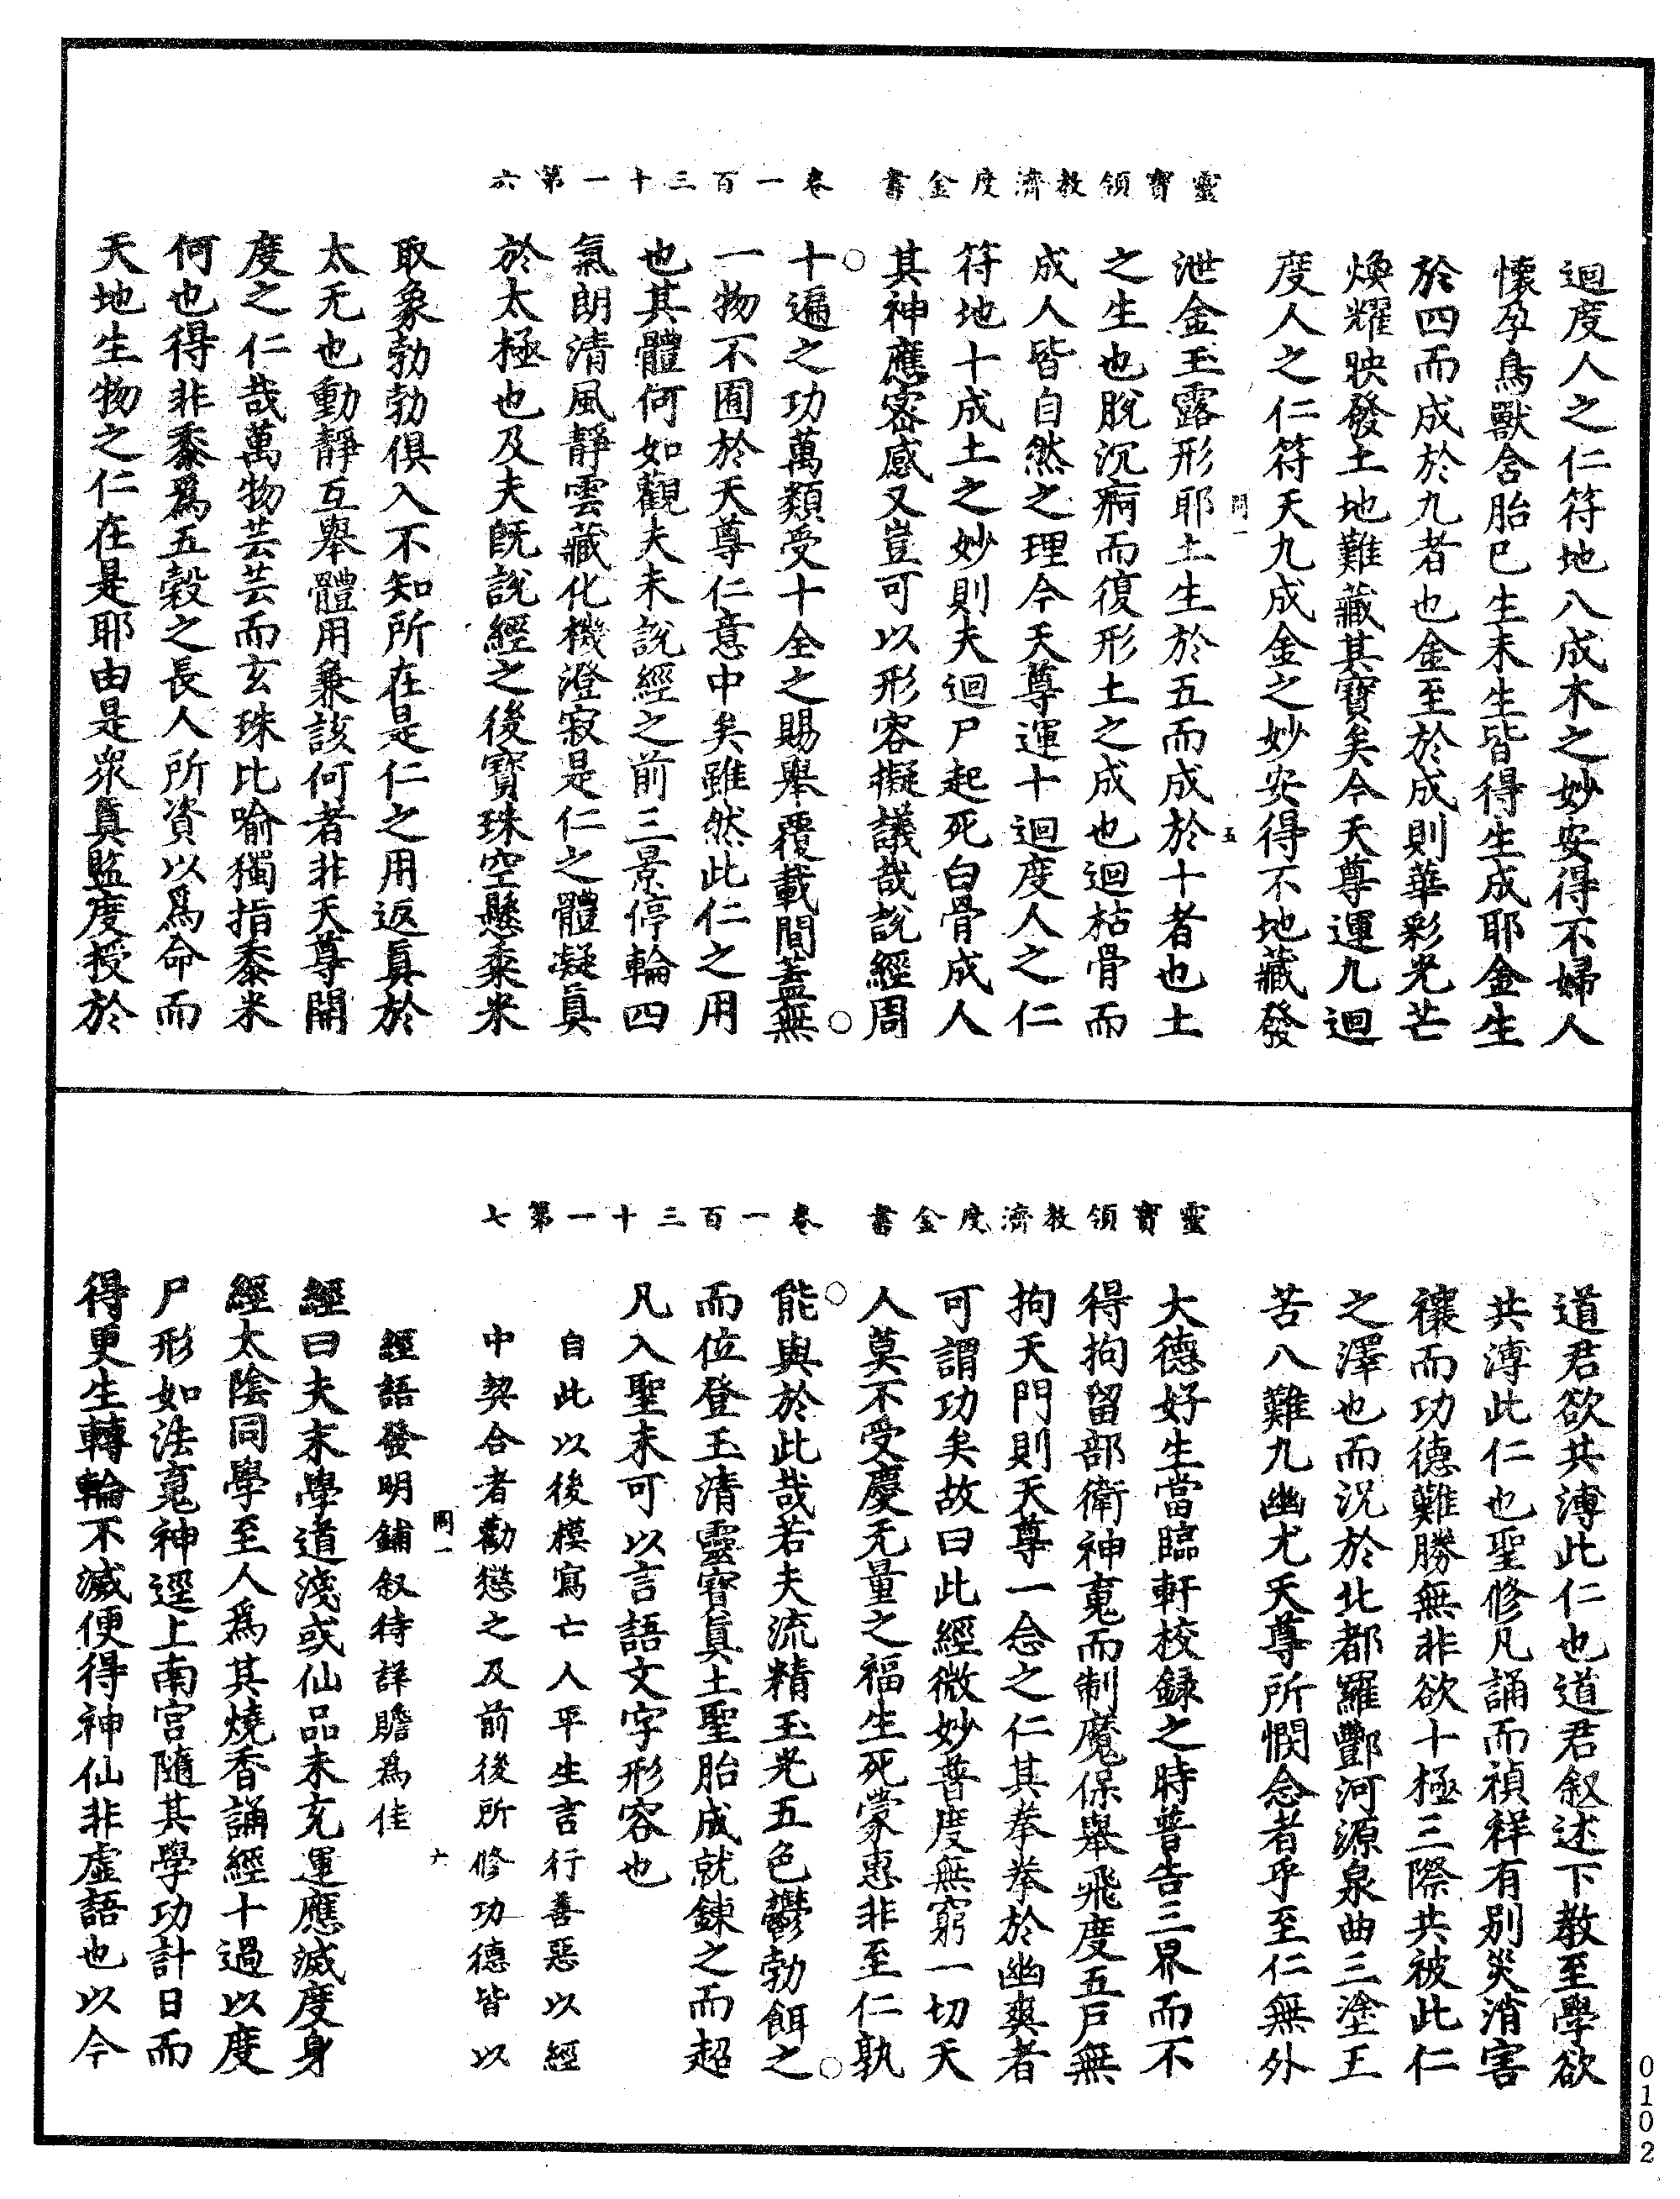 靈寶領教濟度金書　卷一百三十一第六
迴度人之仁符地八成木之妙安得不婦人
懷孕鳥獸含胎已生未生皆得生成耶金生
於四而成於九者也金至於成則華彩光芒
煥耀映發土地難藏其寶矣今天尊運九迴
度人之仁符天九成金之妙安得不地藏發
問一　五
泄金玉露形耶土生於五而成於十者也土
之生也脫沉痾而復形土之成也迴枯骨而
成人皆自然之理今天尊運十迴度人之仁
符地十成土之妙則夫迴尸起死白骨成人
其神應密感又豈可以形容擬議哉說經周
十遍之功萬類受十全之賜舉覆載間蓋無
一物不囿於天尊仁意中矣雖然此仁之用
也其體何如觀夫未說經之前三景停輪四
氣朗清風靜雲藏化機澄寂是仁之體凝眞
於太極也及夫旣說經之後寶珠空懸黍米
取象勃勃俱入不知所在是仁之用返眞於
太无也動靜互舉體用兼該何者非天尊開
度之仁哉萬物芸芸而玄珠比喻獨指黍米
何也得非黍爲五穀之長人所資以爲命而
天地生物之仁在是耶由是衆眞監度授於
靈寶領教濟度金書　卷一百三十一第七
道君欲共溥此仁也道君叙述下教至學欲
共溥此仁也聖修凡誦而禎祥有别災消害
禳而功德難勝無非欲十極三際共被此仁
之澤也而況於北都羅酆河源泉曲三塗五
苦八難九幽尤天尊所憫念者乎至仁無外
大德好生當臨軒校録之時普告三界而不
得拘留部衛神䰟而制魔保舉飛度五戶無
拘天門則天尊一念之仁其拳拳於幽爽者
可謂功矣故曰此經微妙普度無窮一切天
人莫不受慶无量之福生死蒙惠非至仁孰
能與於此哉若夫流精玉光五色鬱勃餌之
而位登玉清靈寶眞土聖胎成就鍊之而超
凡入聖末可以言語文字形容也
自此以後模寫亡人平生言行善惡以經
中契合者勸懲之及前後所修功德皆以
問一　六
經語發明鋪叙待詳贍爲佳
經曰夫末學道淺或仙品未充運應滅度身
經太陰同學至人爲其燒香誦經十過以度
尸形如法䰟神逕上南宫隨其學功計日而
得更生轉輪不滅便得神仙非虛語也以今
0102